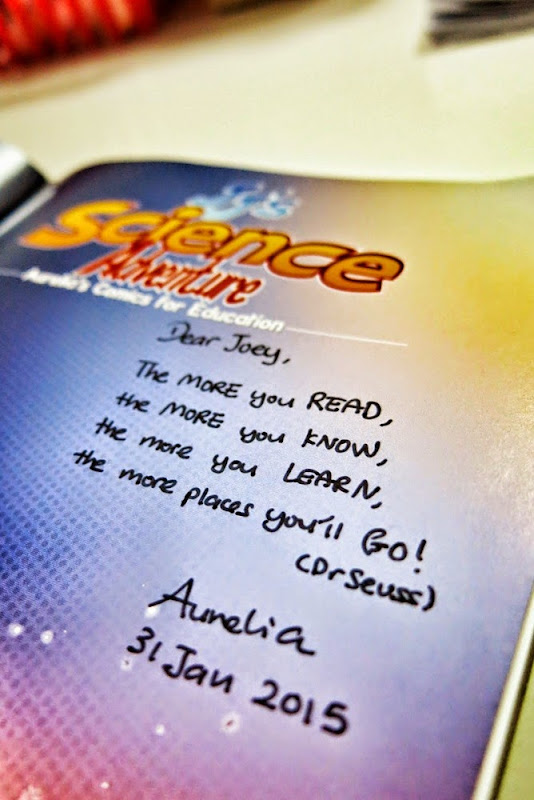 Science
Adventure
Aurelia's Comics for Education
Dear Joey,
The MORE you READ,
the MORE you KNOW,
the more you LEARN,
the more places you'll GO!
(Dr Seuss)
Aurelia
31 Jan 2015